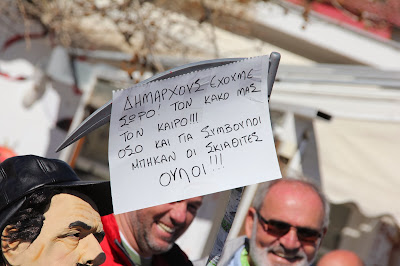 ΔΗΜΑΡΧΟΥΣ ΕΧΟΥΜΕ
ΣΩΡΟ! ΤΟΝ ΚΑΚΟ ΜΑΣ
ΤΟΝ ΚΑΙΡΟ!!!
ΟΣΟ ΚΑΙ ΓΙΑ ΣΥΜΒΟΥΛΟΙ
ΜΠΗΚΑΝ ΟΙ ΣΚΙΑΘΙΤΕΣ
ΟΥΛΟΙ!!!